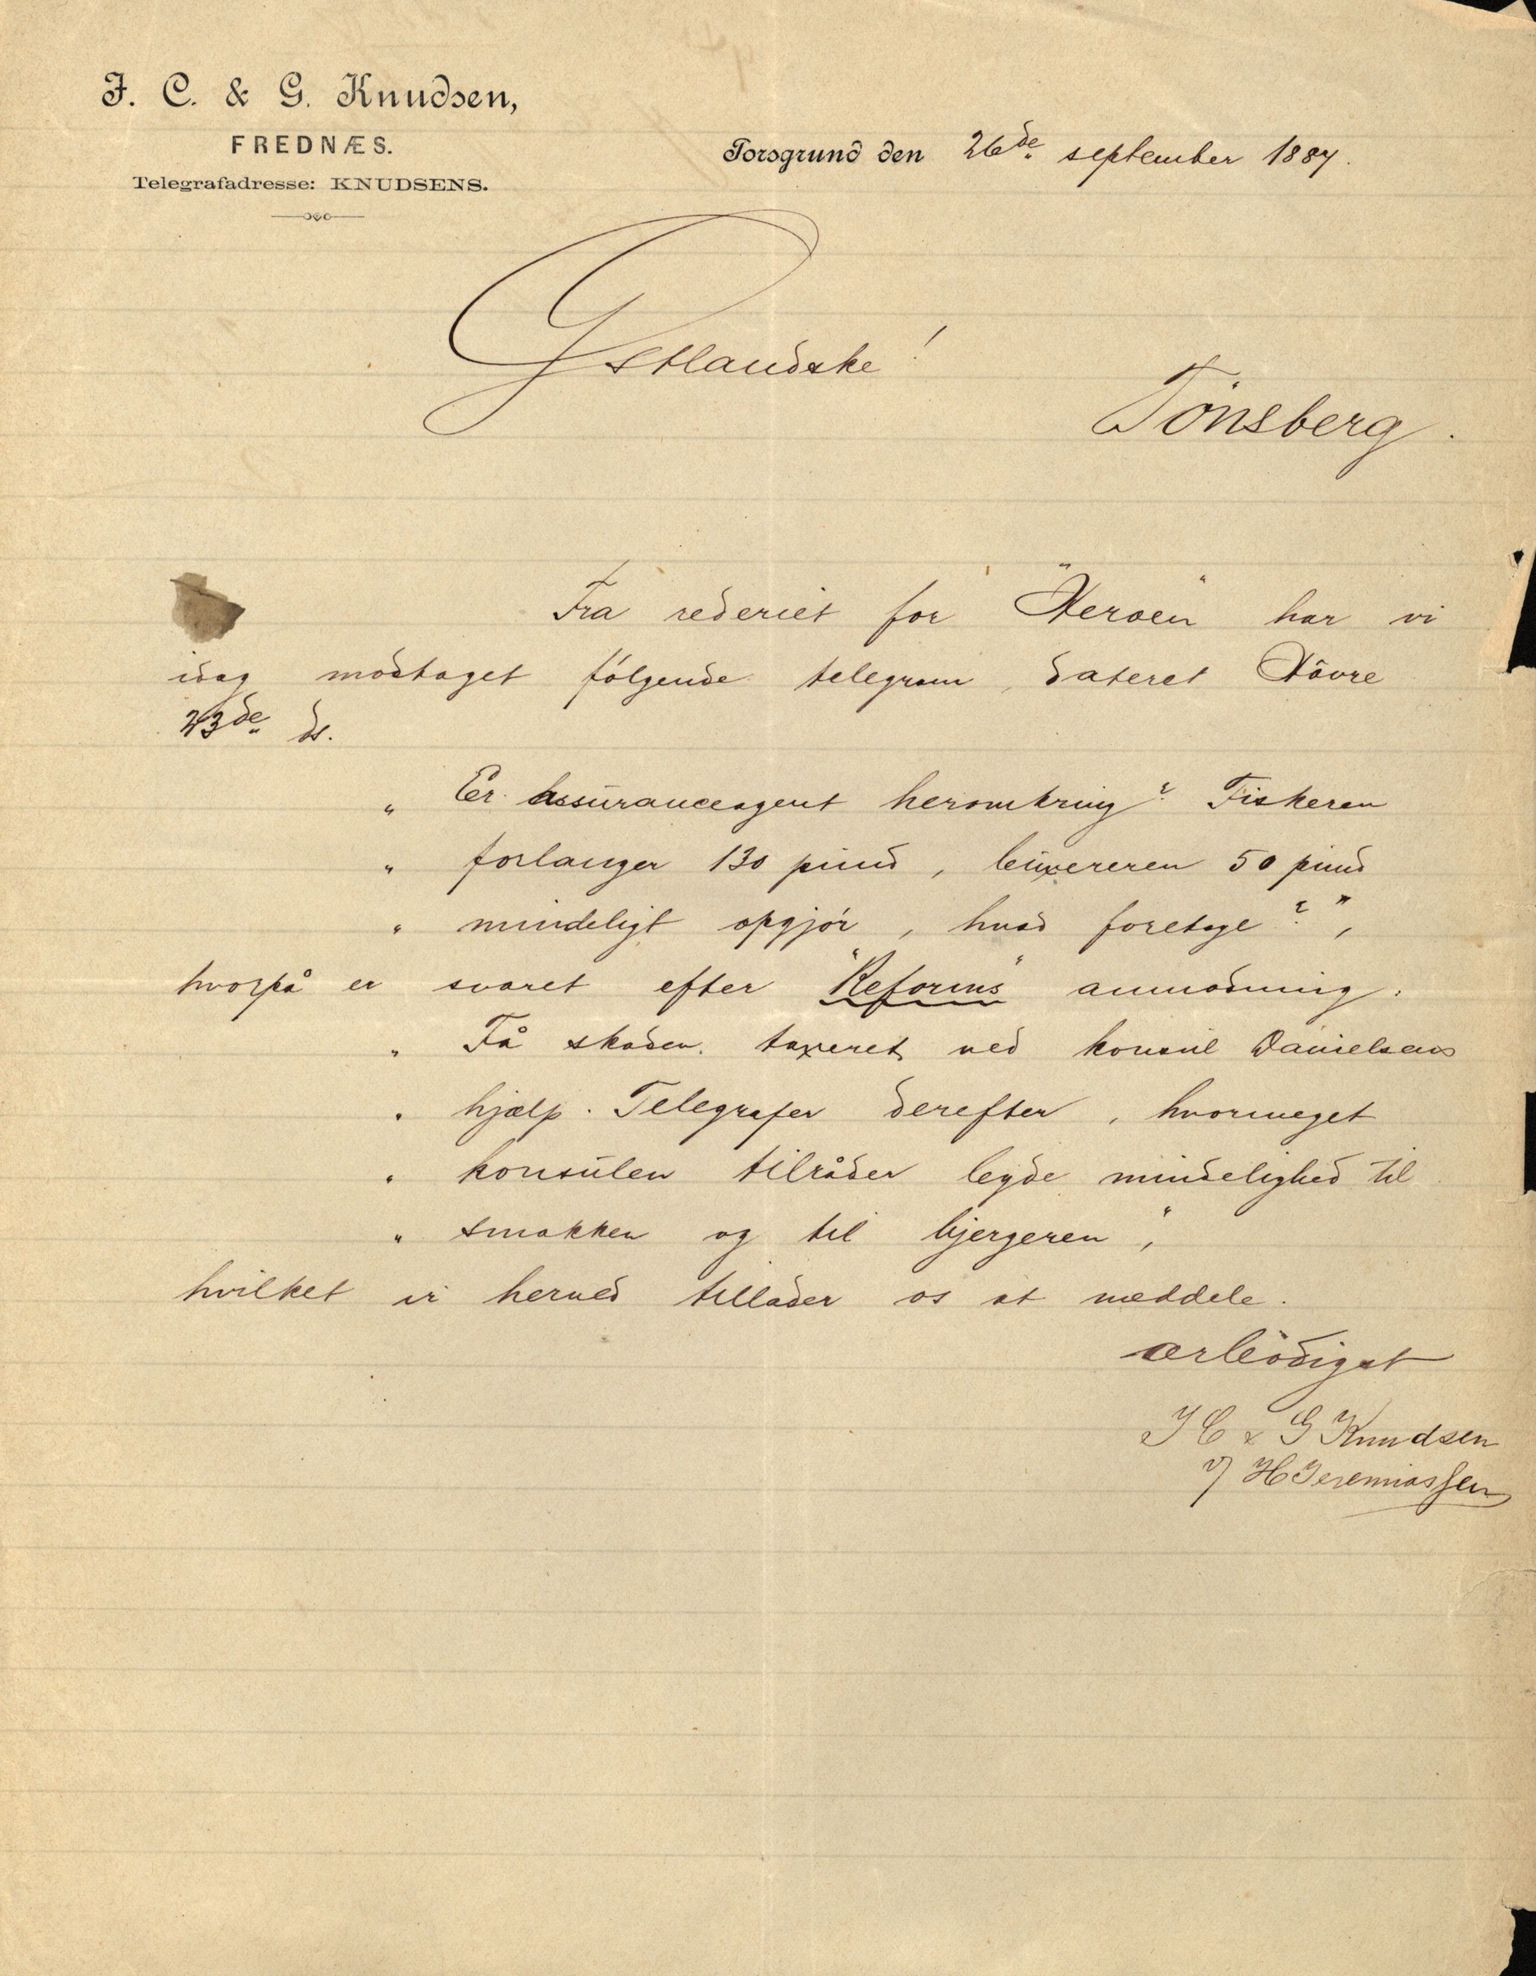 J. C. & G. Knudsen,
FREDNÆS.
Telegrafadresse: KNUDSENS.
Porsgrund den 26de september 1887.
Østlandske!
Tönsberg.
Fra rederiet for "Heroen" har vi
idag modtaget fólgende telegram, dateret Hâvre
23de ds.
" Er assuranceagent heromkring? Fiskeren
" forlanger 130 pund, buxereren 50 pund
" mindeligt opgjór, hvad foretage?",
hvorpå er svaret efter "Reforms" anmodning:
" Få skaden taxeret ved konsul Danielsens
" hjælp. Telegrafer derefter, hvormeget
" konsulen tilråder byde mindelighed til
" smakken og til bjergeren",
hvilket vi herved tillader os at meddele.
ærbödigst
J C & G Knudsen
v/ H Jeremiassen